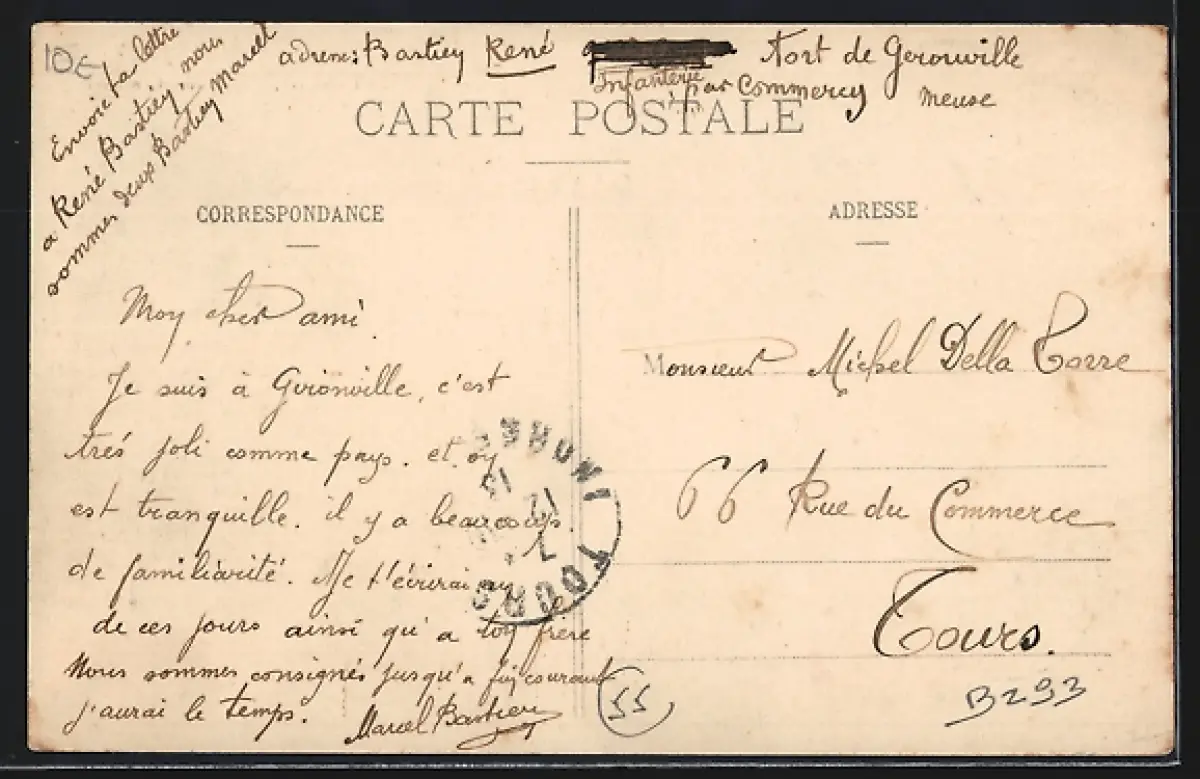 10€
Envoie ta lettre
a René Bastiey, nous
sommes deux Bastiey Marcel
adresse Bastiey René
Infanterie
Fort de Gerouville
par Commercy
Meuse
CARTE POSTALE
CORRESPONDANCE
ADRESSE
Moy cher ami
Je suis à Gironville, c'est
trés joli comme pays. et oy
est tranquille. il y a beaucoups
de familiarité. Je t'écrirai uy
de ces jours ainsi qu'a toy frère
Nous sommes consignés jusqu'a fiy courant
j'aurai le temps. Marcel Bastiey
Monsieur Michel Della Torre
66 Rue du Commerce
Tours.
TOURS
55
B293